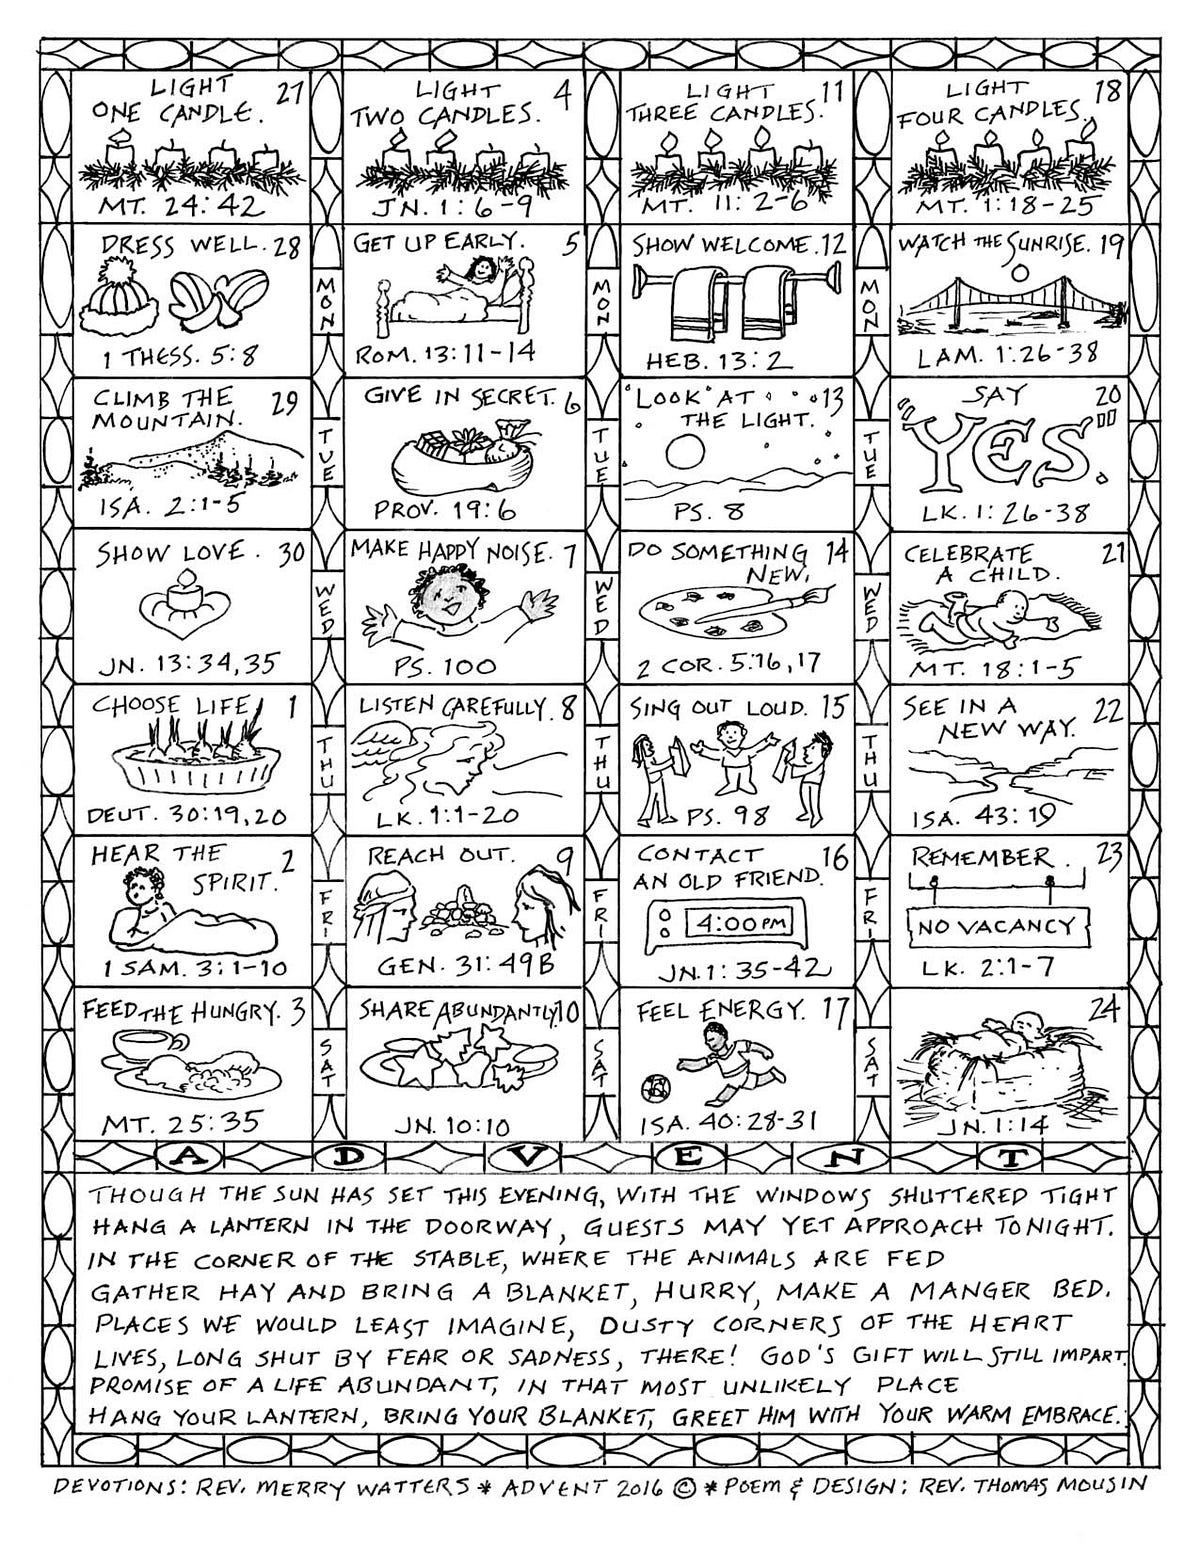 LIGHT 27
ONE CANDLE.
MT. 24:42
LIGHT 4
TWO CANDLES.
JN. 1:6-9
LIGHT 11
THREE CANDLES.
MT. 11:2-6
LIGHT 18
FOUR CANDLES.
MT. 1:18-25
DRESS WELL. 28
1 THESS. 5:8
MON
GET UP EARLY. 5
ROM. 13:11-14
MON
SHOW WELCOME. 12
HEB. 13:2
MON
WATCH THE SUNRISE. 19
LAM. 1:26-38
CLIMB THE 29
MOUNTAIN.
ISA. 2:1-5
TUE
GIVE IN SECRET. 6
PROV. 19:6
TUE
"LOOK" AT 13
THE LIGHT.
PS. 8
TUE
SAY 20
"YES".
LK. 1:26-38
SHOW LOVE. 30
JN. 13:34,35
WED
MAKE HAPPY NOISE. 7
PS. 100
WED
DO SOMETHING 14
NEW.
2 COR. 5:16,17
WED
CELEBRATE 21
A CHILD.
MT. 18:1-5
CHOOSE LIFE! 1
DEUT. 30:19,20
THU
LISTEN CAREFULLY. 8
LK. 1:1-20
THU
SING OUT LOUD. 15
PS. 98
THU
SEE IN A 22
NEW WAY.
ISA. 43:19
HEAR THE 2
SPIRIT.
1 SAM. 3:1-10
FRI
REACH OUT. 9
GEN. 31:49B
FRI
CONTACT 16
AN OLD FRIEND.
4:00 PM
JN. 1:35-42
FRI
REMEMBER. 23
NO VACANCY
LK. 2:1-7
FEED THE HUNGRY. 3
MT. 25:35
SAT
SHARE ABUNDANTLY. 10
JN. 10:10
SAT
FEEL ENERGY. 17
ISA. 40:28-31
SAT
24
JN. 1:14
A D V E N T
THOUGH THE SUN HAS SET THIS EVENING, WITH THE WINDOWS SHUTTERED TIGHT
HANG A LANTERN IN THE DOORWAY, GUESTS MAY YET APPROACH TONIGHT.
IN THE CORNER OF THE STABLE, WHERE THE ANIMALS ARE FED
GATHER HAY AND BRING A BLANKET, HURRY, MAKE A MANGER BED.
PLACES WE WOULD LEAST IMAGINE, DUSTY CORNERS OF THE HEART
LIVES, LONG SHUT BY FEAR OR SADNESS, THERE! GOD'S GIFT WILL STILL IMPART.
PROMISE OF A LIFE ABUNDANT, IN THAT MOST UNLIKELY PLACE
HANG YOUR LANTERN, BRING YOUR BLANKET, GREET HIM WITH YOUR WARM EMBRACE.
DEVOTIONS: REV. MERRY WATTERS * ADVENT 2016 © * POEM & DESIGN: REV. THOMAS MOUSIN